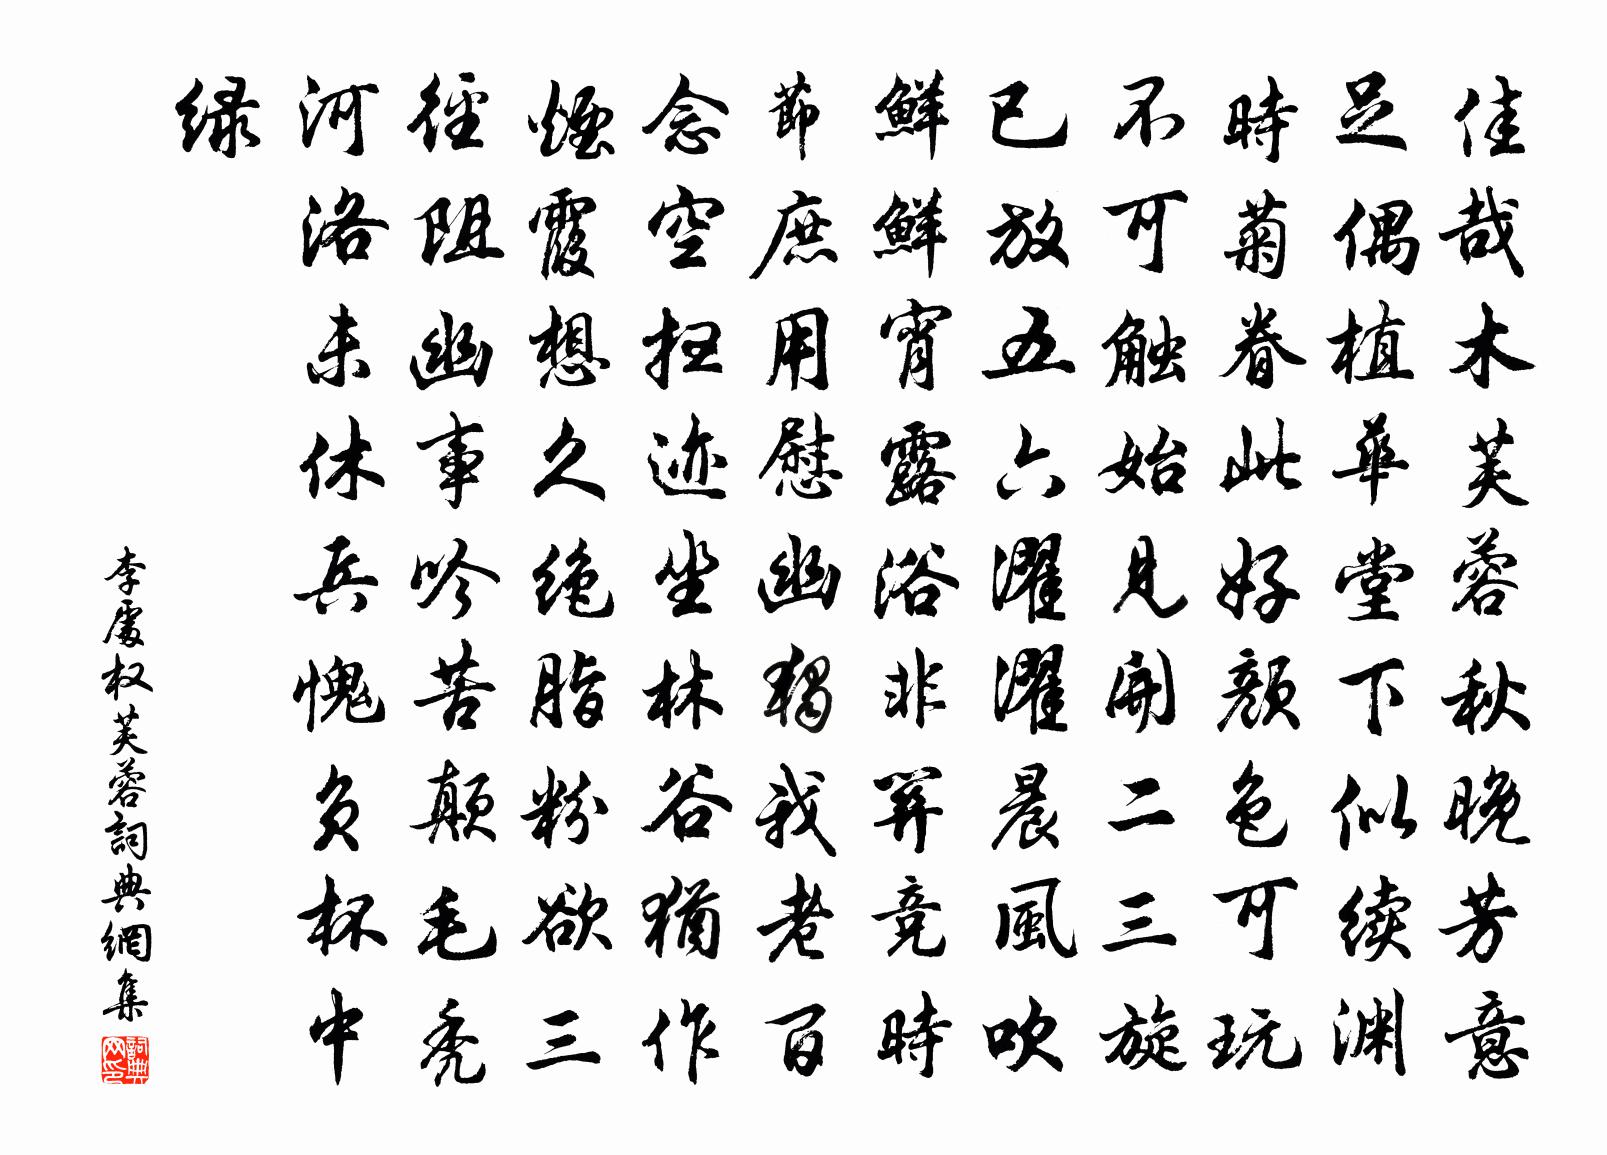 佳哉木芙蓉秋晚芳意
足偶植華堂下似续渊
時菊眷此好顔色可玩
不可触始見開二三旋
已放五六濯濯晨風吹
鮮鮮宵露浴非羿竞時
節庶用慰幽独我老百
念空扫迹坐林谷猶作
煙霞想久绝脂粉欲三
徑阻幽事吟苦颠毛秃
河洛未休兵愧负杯中
绿
李處权芙蓉詞典網集
詞典网印